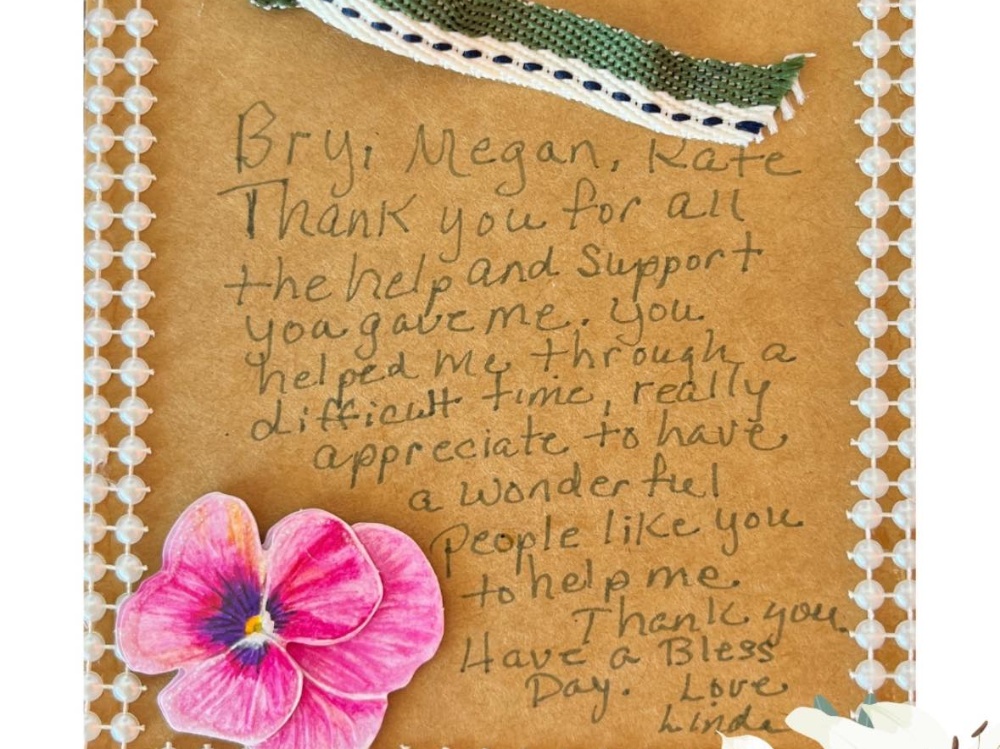 Bry, Megan, Kate
Thank you for all
the help and Support
you gave me. you
helped me through a
difficult time, really
appreciate to have
a wonderful
people like you
to help me.
Thank you.
Have a Bless
Day. Love
Linda